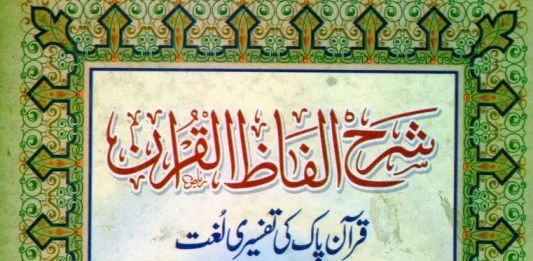 شرح الفاظ القرآن
قرآن پاک کی تفسیری لُغت